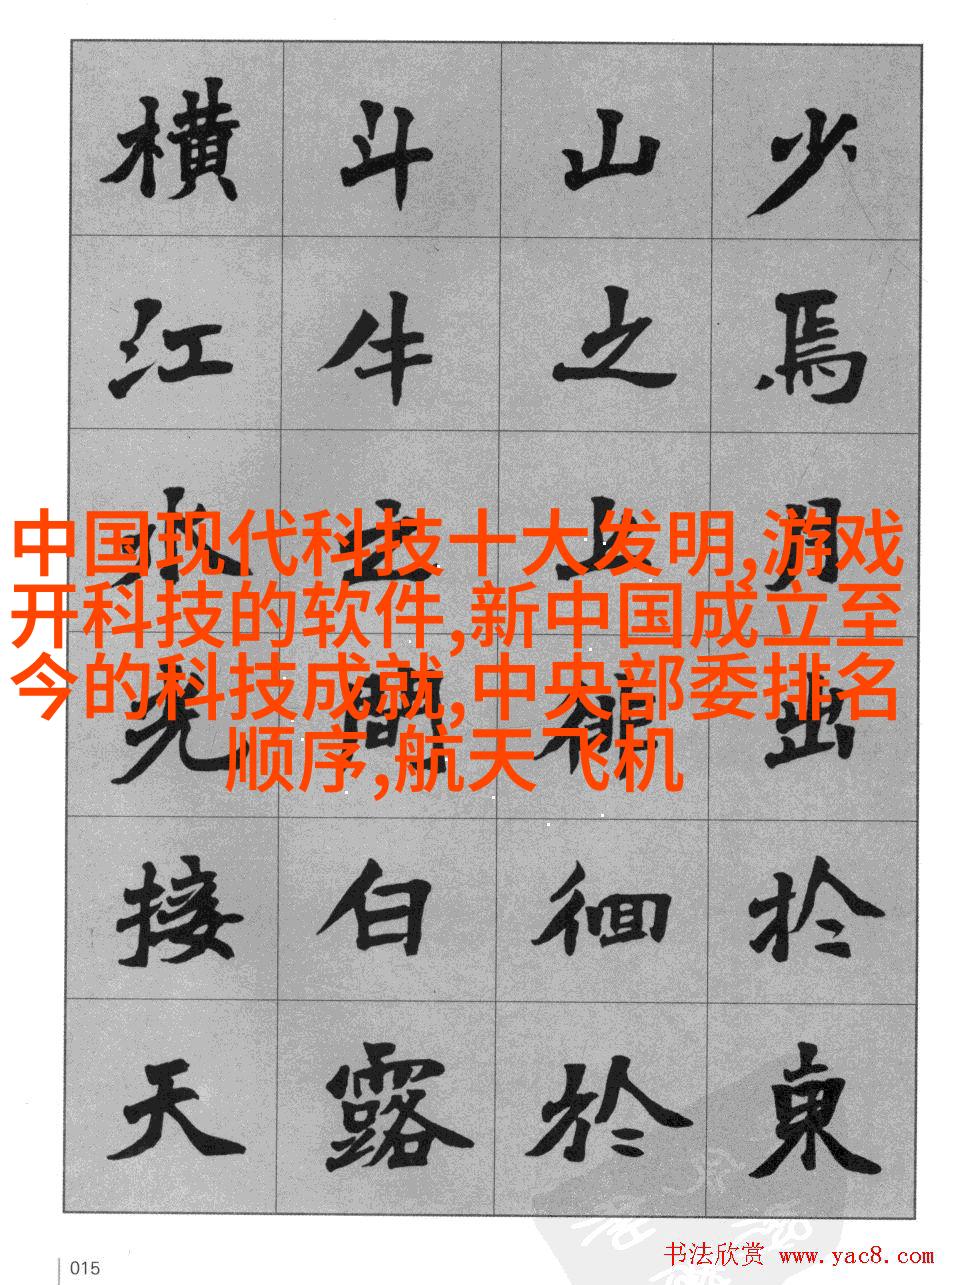 少焉月出於東
山之上徘徊於
斗牛之間白露
横江水光接天
中国现代科技十大发明,游戏
开科技的软件,新中国成立至
今的科技成就,中央部委排名
顺序,航天飞机
015
书法欣赏 www.yac8.com